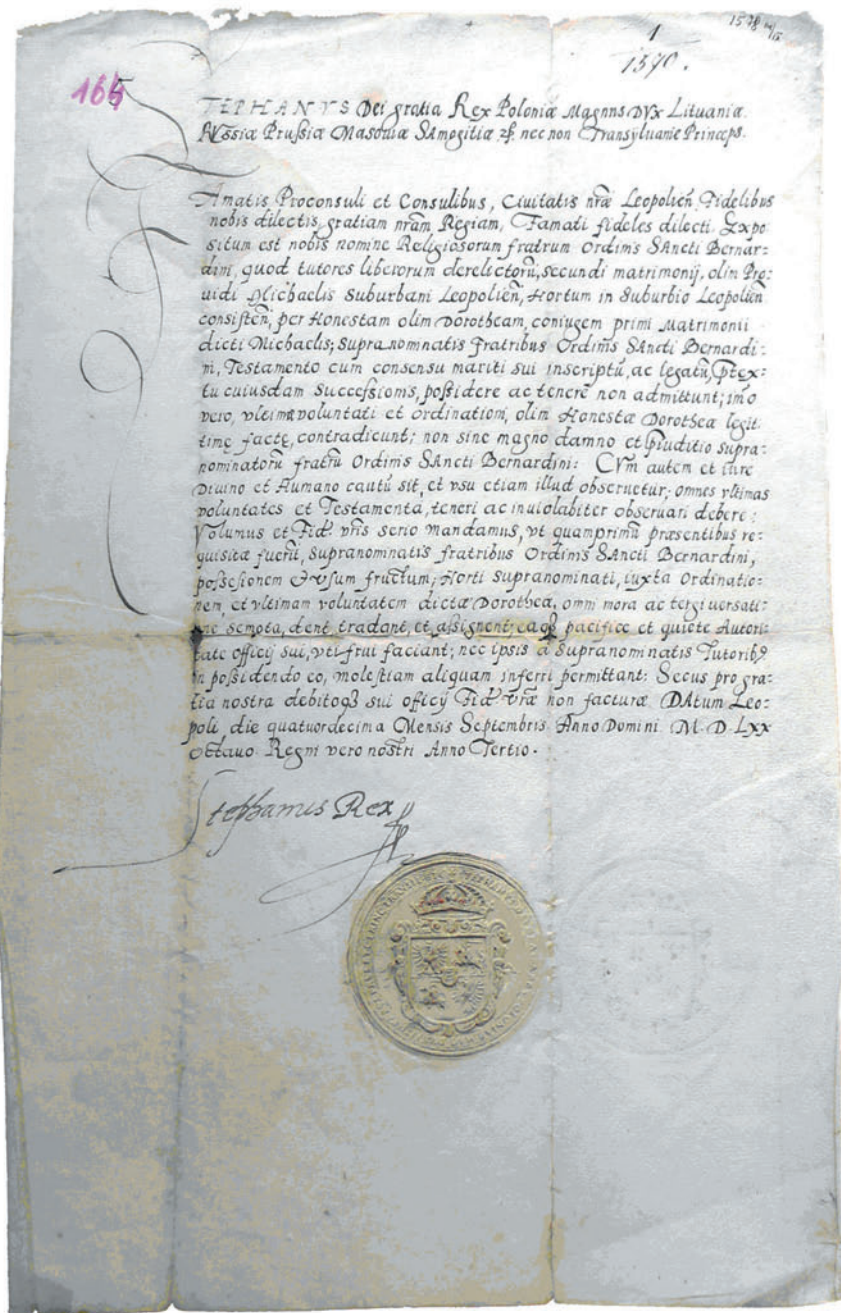 1578 14/IX
1
1570.
165
STEPHANVS Dei gratia Rex Poloniæ Magnus DVx Lituaniæ.
RVssiæ Prussiæ Masouiæ SAmogitiæ zc. nec non Transyluanie Princeps.
Famatis Proconsuli et Consulibus, Ciuitatis nræ Leopolien̄. Fidelibus
nobis dilectis, gratiam nram̄ Regiam, Famati fideles dilecti. Expo
situm est nobis nomine Religiosorum fratrum Ordinis SAncti Bernar-
dini, quod tutores liberorum derelictorū, secundi matrimonij, olim Pro:
uidi Michaelis Suburbani Leopolien̄, Hortum in Suburbio Leopolien̄
consisten̄, per Honestam olim Dorotheam, coniugem primi Matrimonii
dicti Michaelis; supranominatis Fratribus Ordinis SAncti Bernardi:
ni, Testamento cum consensu mariti sui inscriptū, ac legatū, ptex-
tu cuiusdam Successionis, possidere ac tenere non admittunt; imo
vero, vltimæ voluntati et ordinationi, olim Honestæ Dorotheæ legit
time factę, contradicunt; non sine magno damno et piuditio supra-
nominatorū fratrū Ordinis SAncti Bernardini: CVm autem et iure
Diuino et Humano cautū sit, et vsu etiam illud obseruetur; omnes vltimas
voluntates et Testamenta, teneri ac inuiolabiter obseruari debere:
Volumus et Fid. vris serio mandamus, vt quamprimū præsentibus re-
quisitæ fuerīt, supranominatis fratribus Ordinis SAncti Bernardini,
possesionem et vsum fructum, Horti supranominati, iuxta Ordinatio-
nem, et vltimam voluntatem dictæ Dorotheæ, omni mora ac tergiuersati:
one semota, dent, tradant, et assignent; eaq3 pacifice et quiete Autori-
tate officij sui, vti frui faciant; nec ipsis à supranominatis Tutorib9
in possidendo eo, molestiam aliquam inferri permittant: Secus pro gra-
tia nostra debitoq3 sui officij Fid. vræ non facturæ. DAtum Leo-
poli, die quatuordecima Mensis Septembris. Anno Domini. M. D. LXX
Octauo. Regni vero nostri Anno Tertio.
Stephanus Rex